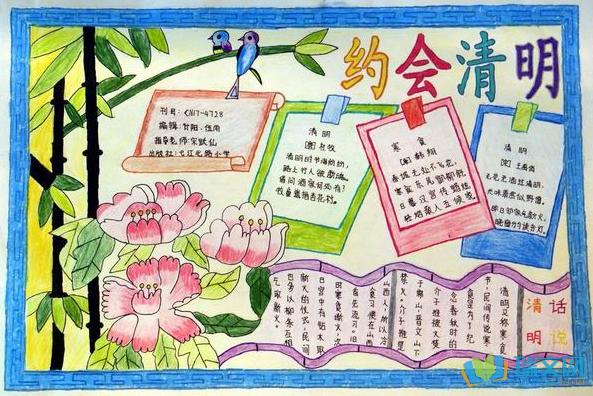 约会清明
刊目：CN17-4728
编辑：
指导老师：宋跃仙
出版社：弋江北路小学
清明
[唐] 杜牧
清明时节雨纷纷，
路上行人欲断魂。
借问酒家何处有？
牧童遥指杏花村。
寒食
[唐] 韩翃
春城无处不飞花，
寒食东风御柳斜。
日暮汉宫传蜡烛，
轻烟散入五侯家。
清明
[宋] 王禹偁
无花无酒过清明，
兴味萧然似野僧。
昨日邻家乞新火，
晓窗分与读书灯。
话说
清明
清明又称寒食
节，民间传说寒食
是为了纪
念春秋时的
介子推被火焚
于绵山，晋文公下
禁火。介子推是
山西人所以方
食习俗在山西
首先流行。旧
时寒食断火，次
日宫中有钻木取
新火的仪式，民间
也多以柳条互相
乞取新火。